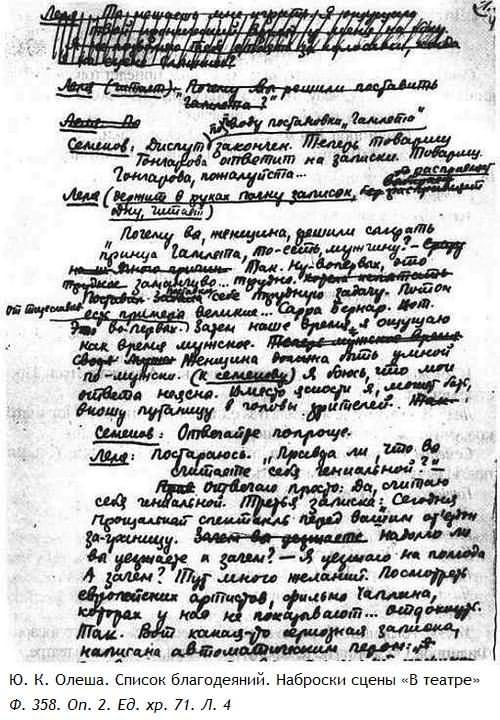 Леля (читает). "Почему вы решили поставить
"Гамлета?"
По поводу постановки "Гамлета"
Семенов: Диспут закончен. Теперь товарищ
Гончарова ответит на записки. Товарищ
Гончарова, пожалуйста...
Леля (держит в руках пачку записок,
одну, читает)
"Почему вы, женщина, решили сыграть
принца Гамлета, то-есть мужчину? –
Так. Ну-вопервых, это
трудно.
Поставила себе трудную задачу. Потом
есть примеры великие... Сарра Бернар. Вот.
Это во-первых. Затем наше время я ощущаю
как время мужское.
Женщина должна быть умной
по мужски. (к семенову) Я боюсь, что мои
ответы неясны. Вместо ясности я, может быть,
вношу путаницу в головы зрителей.
Семенов: Отвечайте попроще.
Леля: постараюсь. "Правда ли, что вы
считаете себя гениальной?" –
Отвечаю просто: да, считаю
себя гениальной. Третья записка: Сегодня
прощальный спектакль перед вашим от'ездом
за-границу. надолго ли
вы уезжаете и зачем? – Я уезжаю на полгода
А зачем? Тут много желаний. Посмотреть
европейских артистов, фильмы Чаплина,
которых у нас не показывают... отдохнуть.
Так. Вот какая-то серьозная записка,
написана автоматическим пером:
Ю. К. Олеша. Список благодеяний. Наброски сцены «В театре»
Ф. 358. Оп. 2. Ед. хр. 71. Л. 4